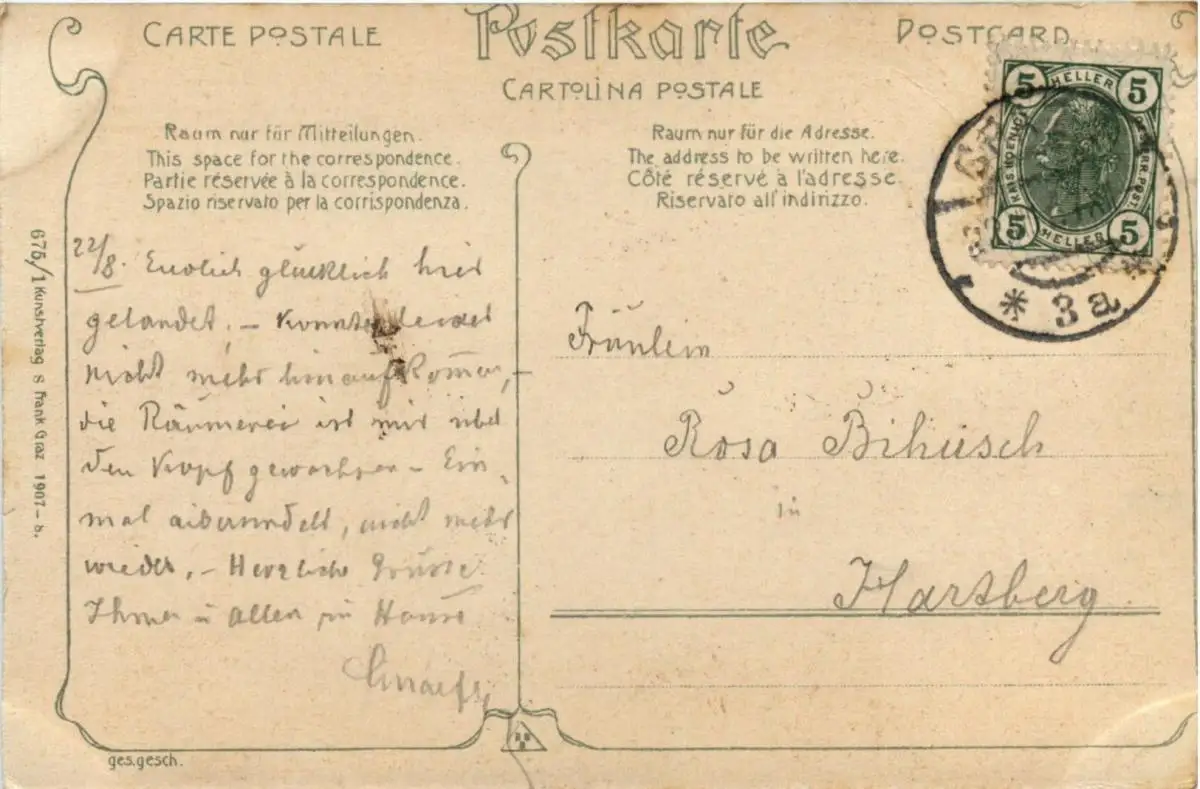 CARTE POSTALE
Postkarte
POSTCARD
CARTOLINA POSTALE
Raum nur für Mitteilungen.
This space for the correspondence.
Partie réservée à la correspondence.
Spazio riservato per la corrispondenza.
Raum nur für die Adresse.
The address to be written here.
Côté réservé à l'adresse.
Riservato all' indirizzo.
5 HELLER 5
5 HELLER 5
* 3a
22/8. Endlich glücklich hier
gelandet. – Konnte leider
nicht mehr hinaufkommen, –
die Räumerei ist mir über
den Kopf gewachsen – Ein-
mal, nicht mehr
wieder. – Herzliche Grüsse
Ihnen u allen im Hause
Fräulein
Rosa Bihusch
in
Hartberg
675/1 Kunstverlag S Frank Graz 1907 - 8.
ges. gesch.